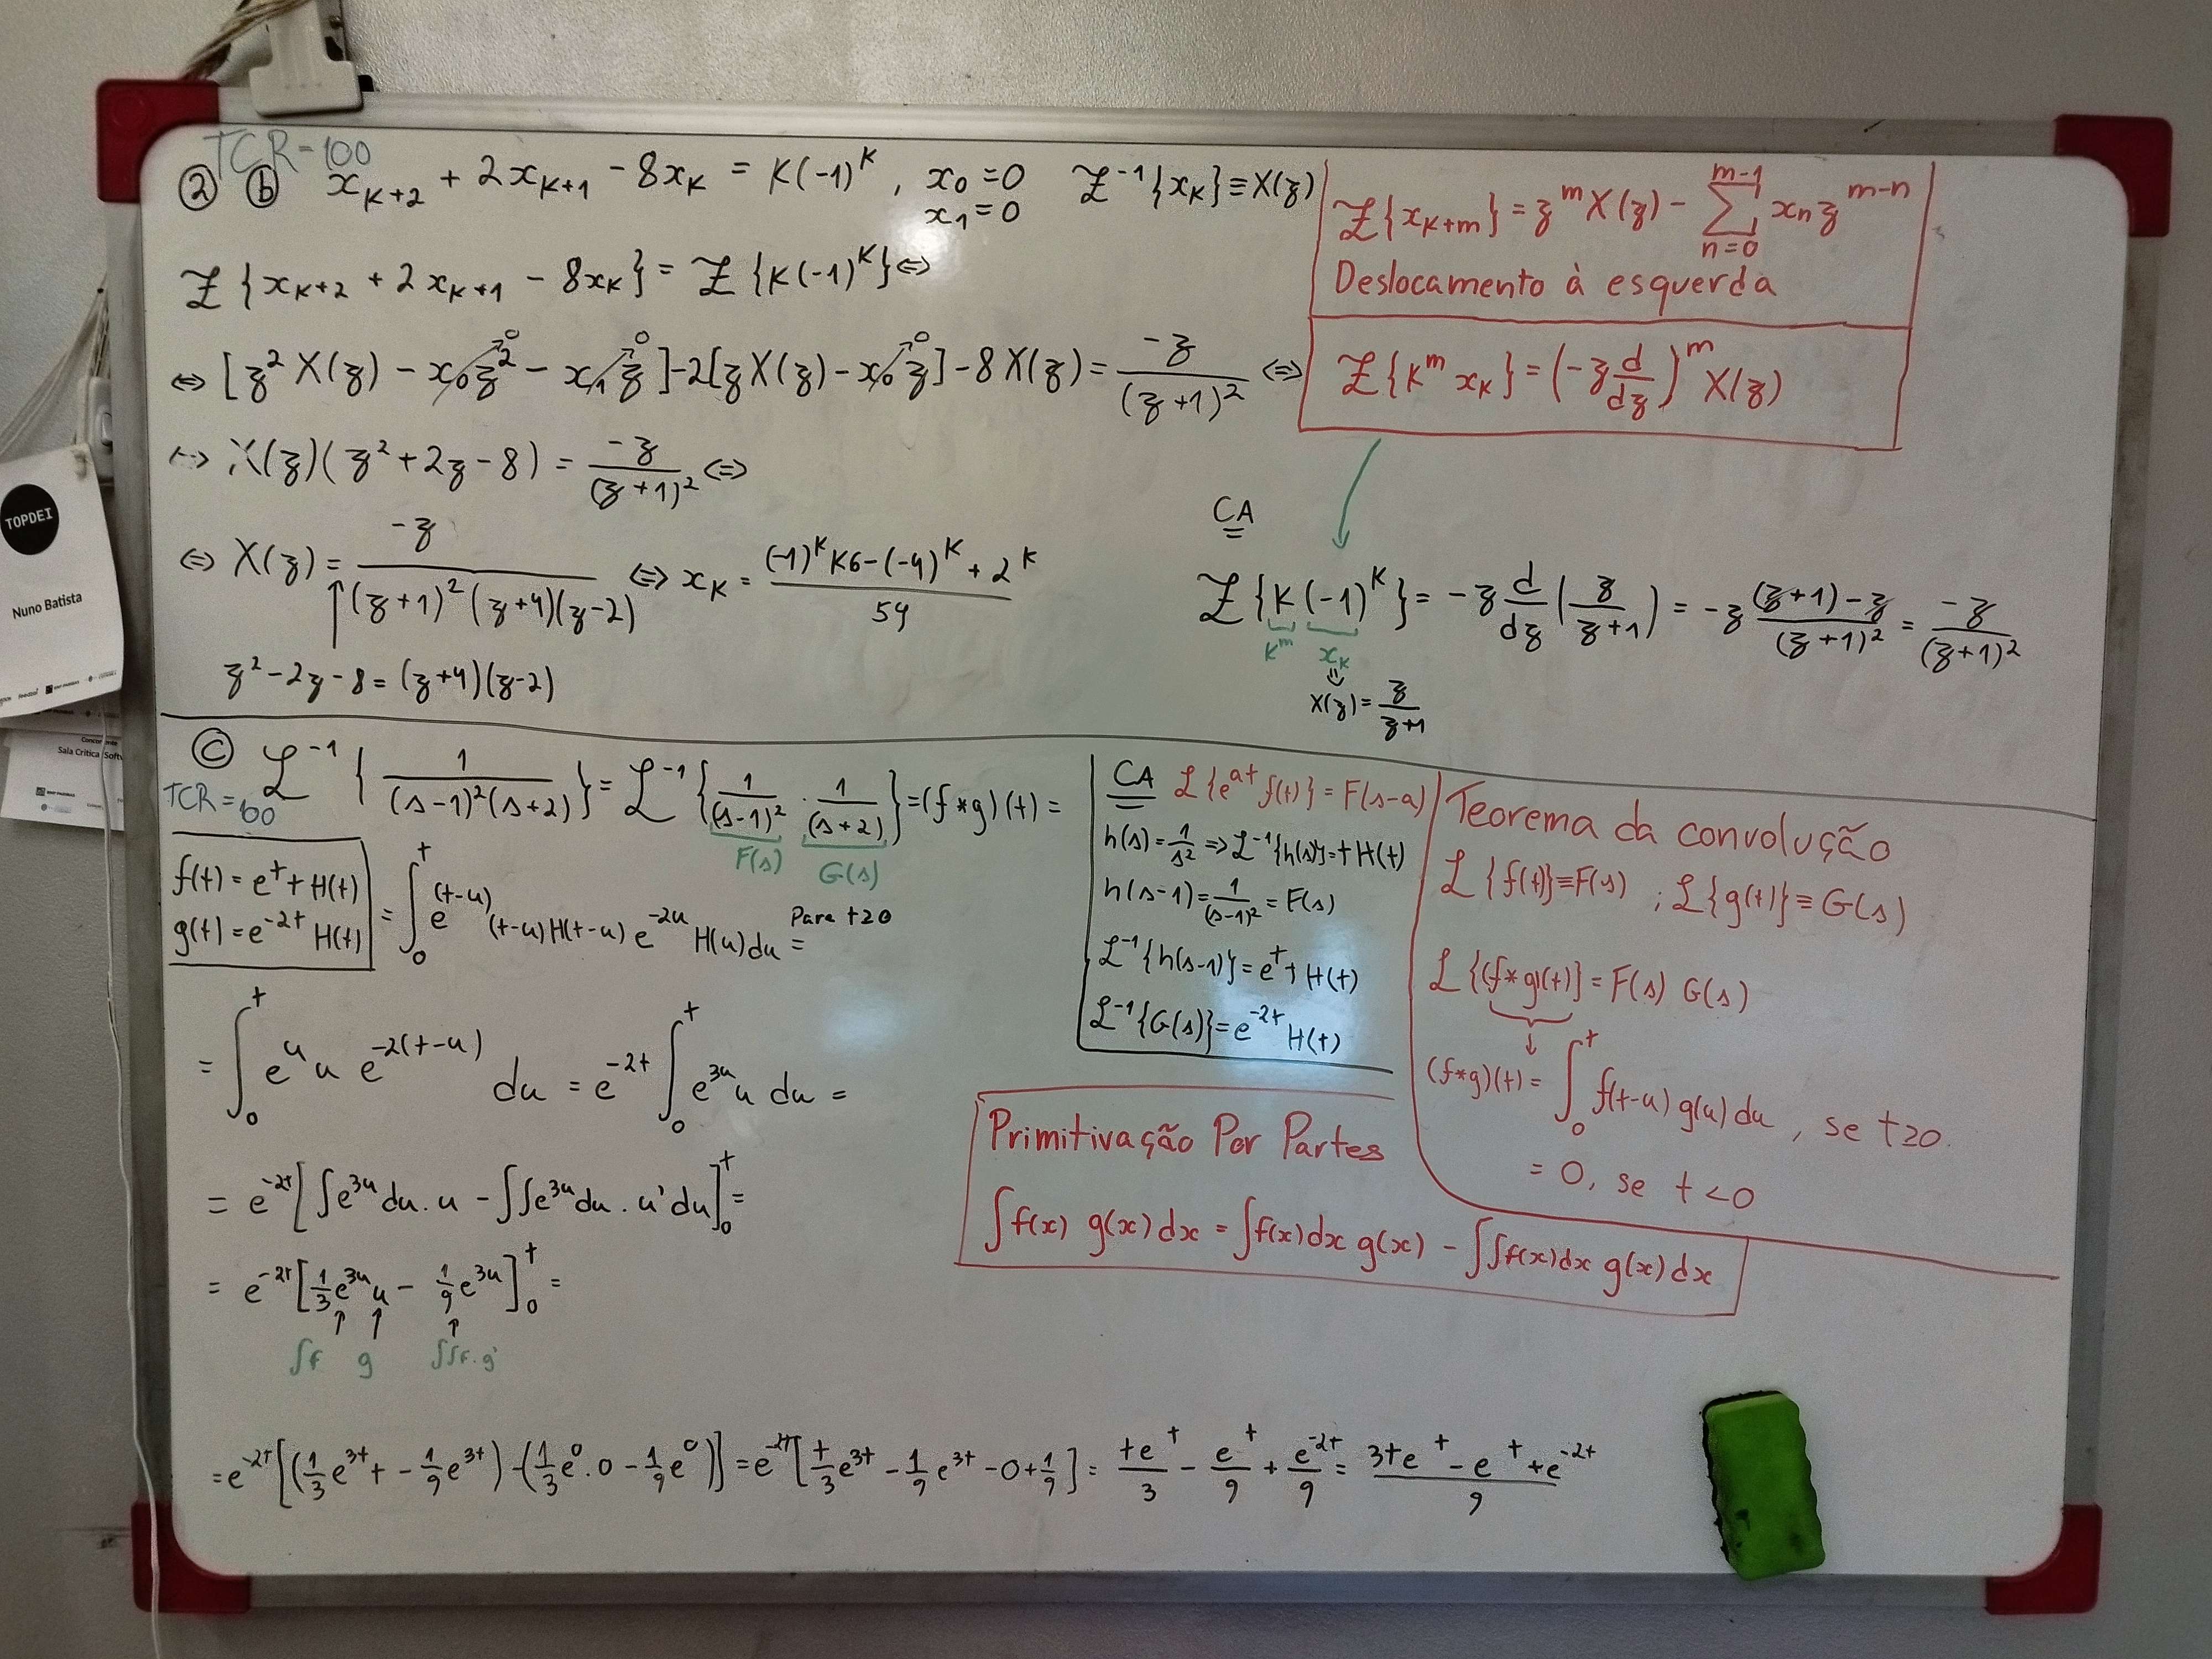 TCR=100
② ⓑ x_{K+2} + 2x_{K+1} - 8x_K = K(-1)^K, x_0=0 Z^{-1}{x_K}≡X(z)
x_1=0
Z{x_{K+2} + 2x_{K+1} - 8x_K} = Z{K(-1)^K} <=>
<=> [z^2 X(z) - x_0 z^2 - x_1 z] - 2[z X(z) - x_0 z] - 8 X(z) = -z/(z+1)^2 <=>
0 0 0
<=> X(z)(z^2+2z-8) = -z/(z+1)^2 <=>
<=> X(z) = -z/((z+1)^2(z+4)(z-2)) <=> x_K = ((-1)^K K6-(-4)^K + 2^K)/54
z^2-2z-8=(z+4)(z-2)
Z{x_{K+m}} = z^m X(z) - ∑_{n=0}^{m-1} x_n z^{m-n}
Deslocamento à esquerda
Z{K^m x_K} = (-z d/dz)^m X(z)
CA
Z{K(-1)^K} = -z d/dz (z/(z+1)) = -z ((z+1)-z)/(z+1)^2 = -z/(z+1)^2
K^m x_K
X(z) = z/(z+1)
ⓒ L^{-1}{1/((s-1)^2(s+2))} = L^{-1}{1/(s-1)^2 · 1/(s+2)} = (f*g)(t) =
TCR=100
F(s) G(s)
f(t) = e^t t H(t)
g(t) = e^{-2t} H(t)
= ∫_0^t e^{(t-u)} (t-u) H(t-u) e^{-2u} H(u) du =
Para t≥0
= ∫_0^t e^u u e^{-2(t-u)} du = e^{-2t} ∫_0^t e^{3u} u du =
= e^{-2t}[∫e^{3u} du . u - ∫∫e^{3u} du . u' du]_0^t =
= e^{-2t}[1/3 e^{3u} u - 1/9 e^{3u}]_0^t =
∫f g ∫∫f.g'
= e^{-2t}[(1/3 e^{3t} t - 1/9 e^{3t}) - (1/3 e^0 . 0 - 1/9 e^0)] = e^{-2t}[t/3 e^{3t} - 1/9 e^{3t} - 0 + 1/9] = te^t/3 - e^t/9 + e^{-2t}/9 = (3te^t - e^t + e^{-2t})/9
CA L{e^{at} f(t)} = F(s-a)
h(s) = 1/s^2 => L^{-1}{h(s)} = t H(t)
h(s-1) = 1/(s-1)^2 = F(s)
L^{-1}{h(s-1)} = e^t t H(t)
L^{-1}{G(s)} = e^{-2t} H(t)
Teorema da convolução
L{f(t)}≡F(s) ; L{g(t)}≡G(s)
L{(f*g)(t)} = F(s) G(s)
(f*g)(t) = ∫_0^t f(t-u) g(u) du, se t≥0.
= 0, se t<0
Primitivação Por Partes
∫f(x) g(x) dx = ∫f(x)dx g(x) - ∫∫f(x)dx g(x) dx
TOPDEI
Nuno Batista